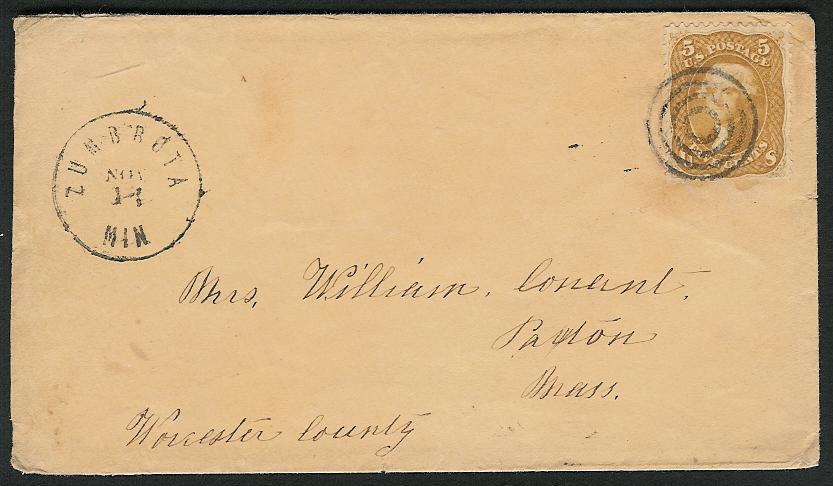 5 5
U.S. POSTAGE
CENTS
ZUMBROTA
NOV
14
MIN
Mrs. William. Conant.
Paxton
Mass.
Worcester County